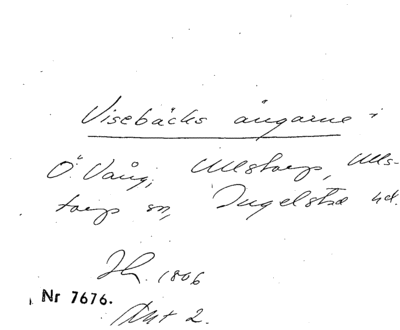 Visebäcks ängarne i
Ö. Vång, Ullstorp, Ulls-
torps sn, Ingelstad hd.
Jh. 1806
Nr 7676.
Akt 2.